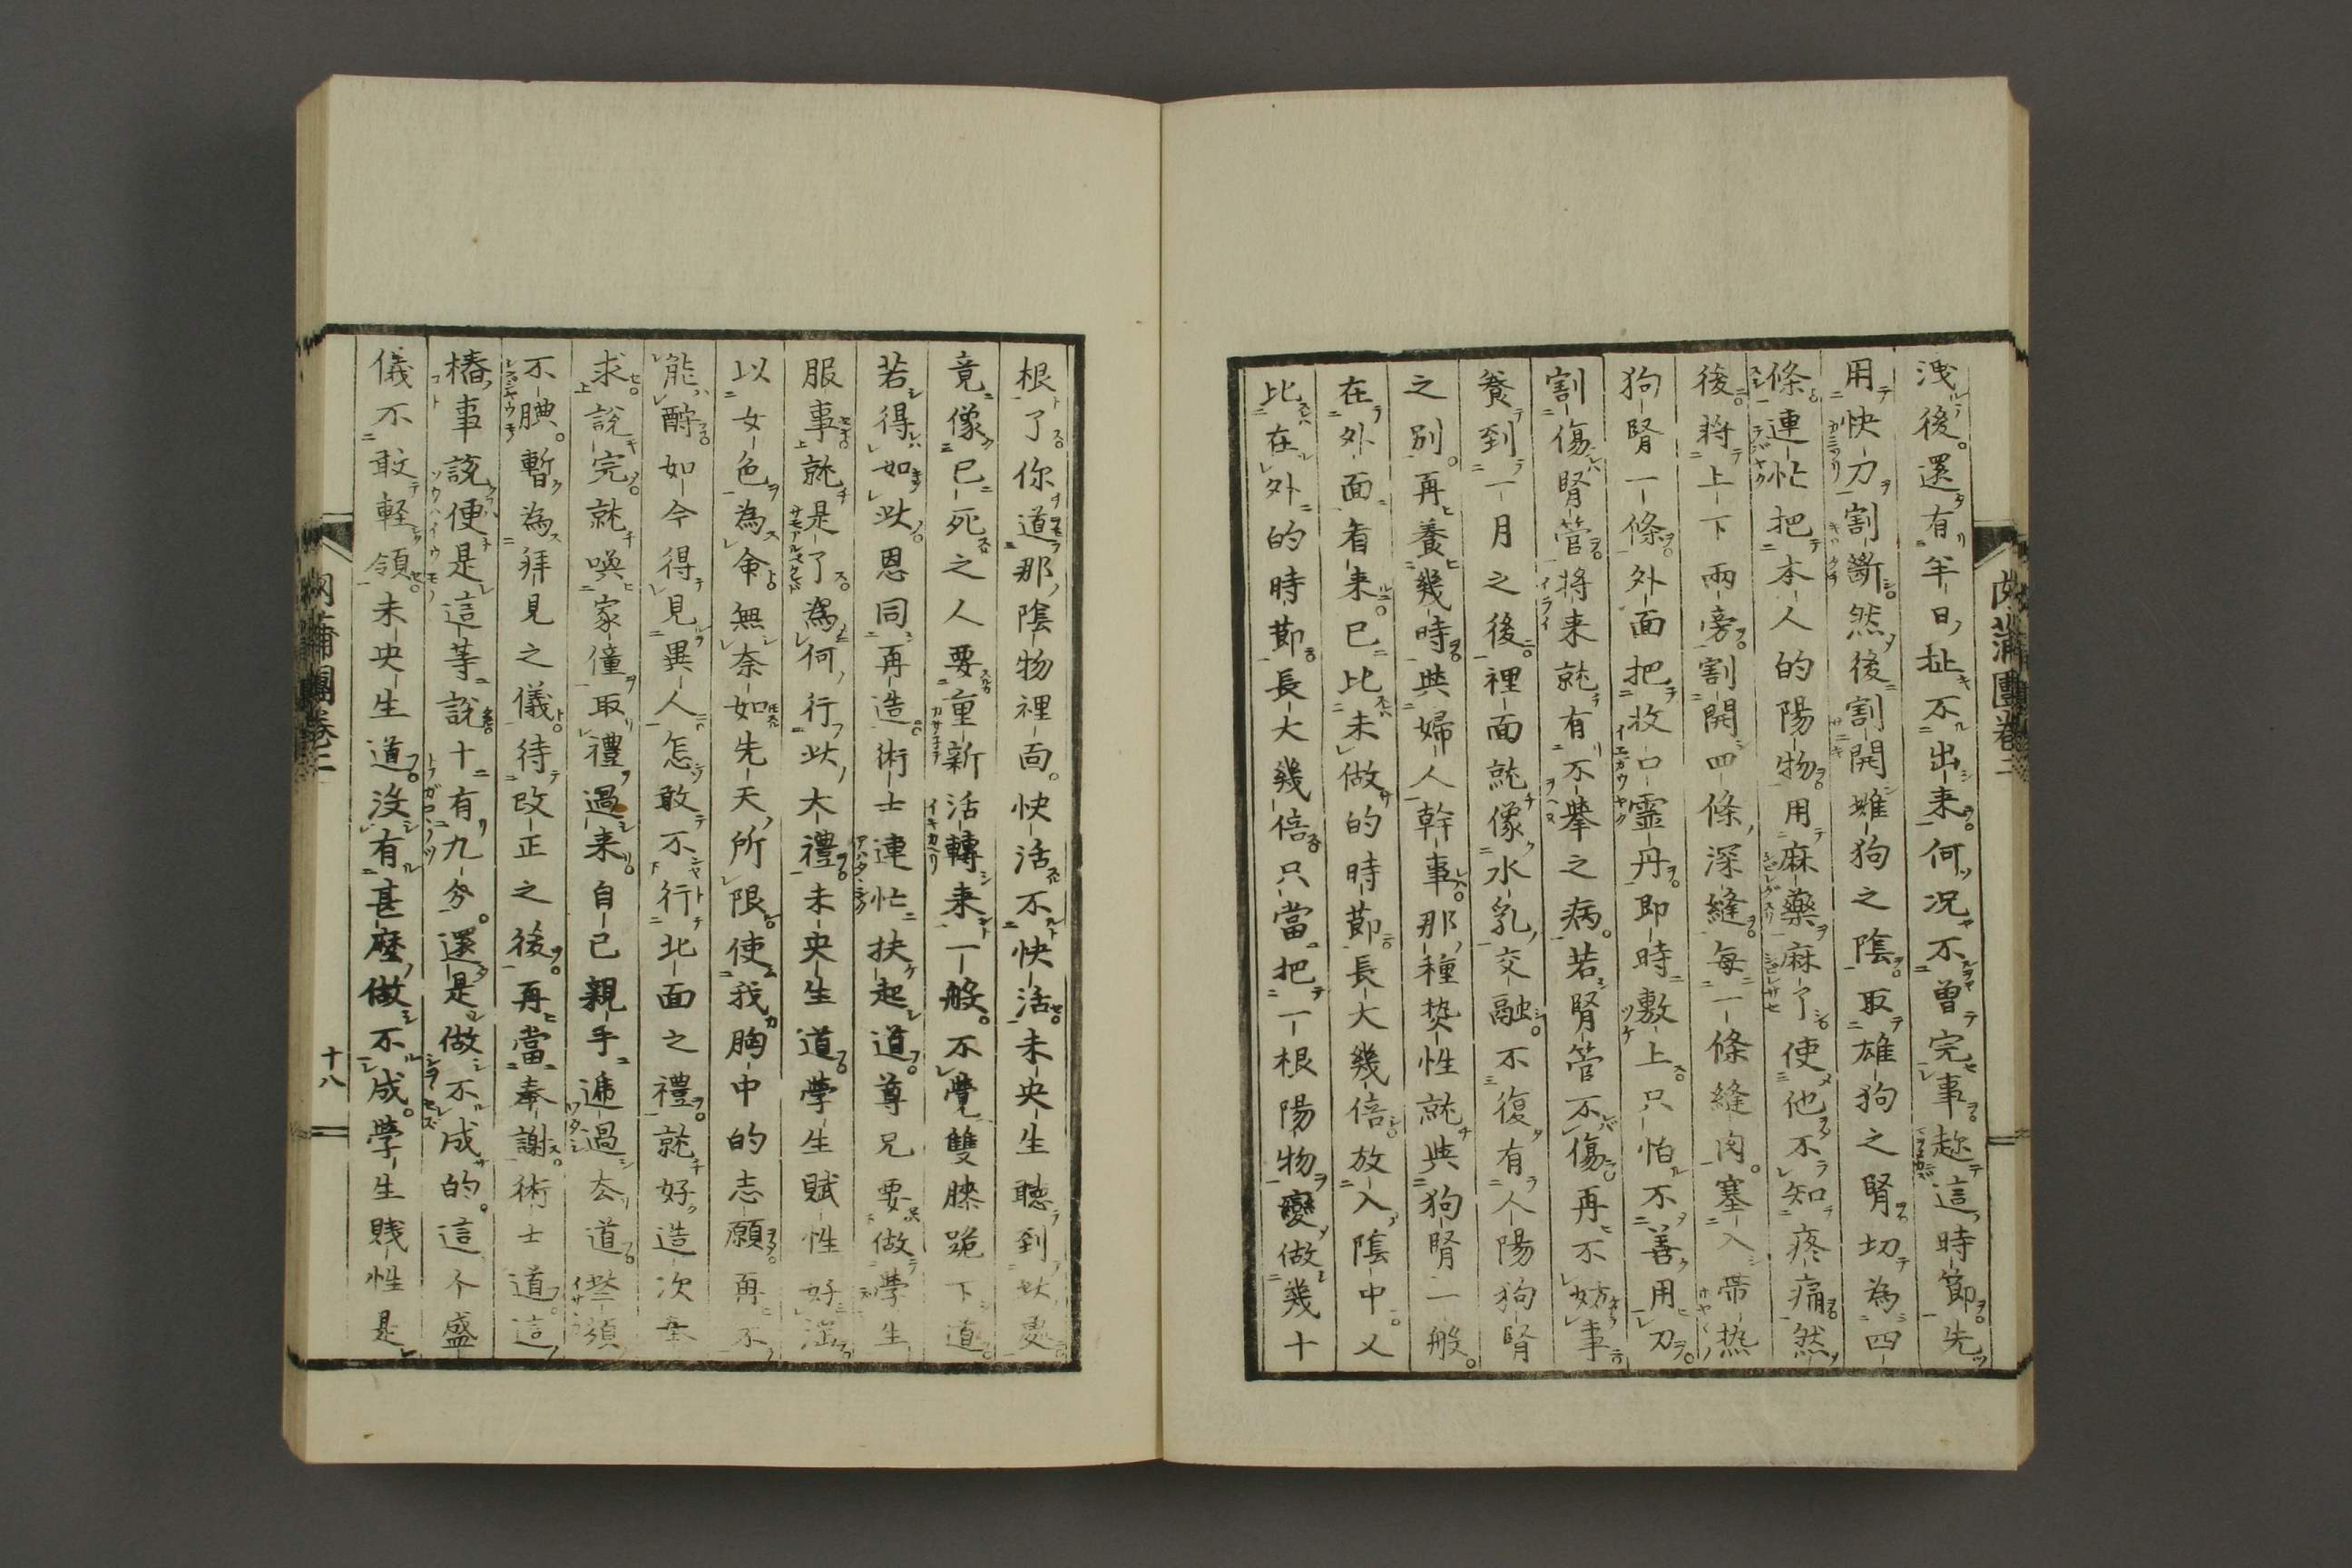 洩後。還有半日扯不出来何況不曽完事趂這時節先
用快刀割斷然後割開雌狗之陰取雄狗之腎切為四
條連忙把本人的陽物用麻藥麻了使他不知疼痛然
後將上下兩旁割開四條深縫每一條縫肉。塞入帶热
狗腎一條外面把收口靈丹即時敷上只怕不善用刀
割傷腎管將来就有不擧之病。若腎管不傷再不妨事
養到一月之後裡面就像水乳交融不復有人陽狗腎
之別。再養幾時與婦人幹事那種热性就與狗腎一般。
在外面看来已比未做的時節長大幾倍放入陰中。又
比在外的時節長大幾倍只當把一根陽物變做幾十
根了你道那陰物裡面。快活不快活未央生聴到此處
竟像已死之人要重新活轉来一般。不覺雙膝跪下道
若得如此恩同再造術士連忙扶起道尊兄要做學生
服事就是了為何行此大禮未央生道學生賦性好淫
以女色為命無奈如先天所限使我胸中的志願再不
能酧如今得見異人怎敢不行北面之禮就好造次奉
求說完就喚家僮取禮過来自己親手遞過去道些須
不腆。暫為拜見之儀待改正之後再當奉謝術士道這
樁事該便是這等說十有九分。還是做不成的。這个盛
儀不敢軽領未央生道没有甚麼做不成。學生賤性是
肉蒲團卷二
十八